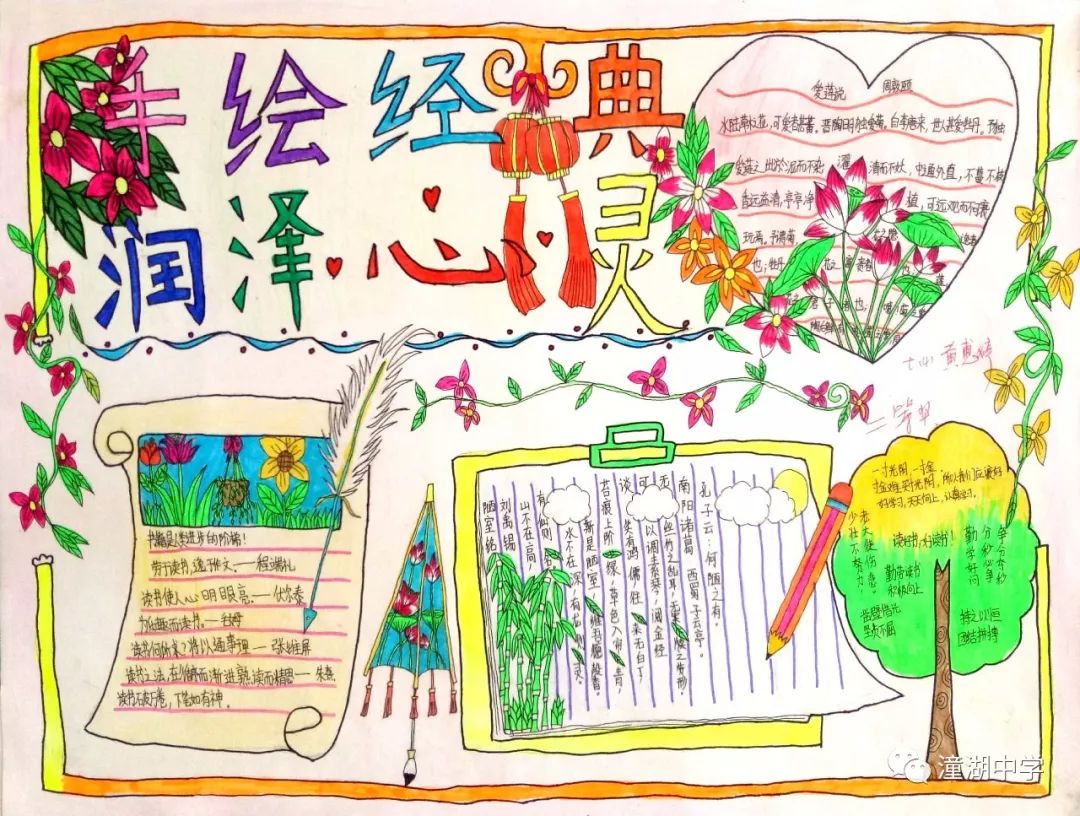 手绘经典
润泽心灵
爱莲说 周敦颐
水陆草木之花，可爱者甚蕃。晋陶渊明独爱菊。自李唐来，世人甚爱牡丹。予独
爱莲之出淤泥而不染 濯清 而不妖，中通外直，不蔓不
香远益清，亭亭净植，可远观而不
玩焉。予谓菊
也；牡丹
七(4) 黄
二等奖
书籍是人类进步的阶梯！
劳于读书，逸于作文。——程端礼
读书使人心明眼亮。——伏尔泰
为乐趣而读书。——毛姆
读书何所求？将以通事理——张维屏
读书之法，在循序而渐进，熟读而精思——朱熹
读书破万卷，下笔如有神。
孔子云：何陋之有。
南阳诸葛 西蜀子云亭。
无丝竹之乱耳，无案牍之劳形，
可以调素琴，阅金经
谈笑有鸿儒，往来无白丁，
苔痕上阶绿，草色入帘青，
斯是陋室，惟吾德馨。
水不在深，有 则灵。
山不在高，有仙则
刘禹锡
陋室铭
一寸光阴一寸金
寸金难买寸光阴，所以我们应该好
好学习，天天向上，认真学习。
少壮不努力，
老
读好书，好读书！
勤带读书
积极向上
勤学好问
分秒必争
争分夺秒
凿壁借光
坚贞不屈
持之以恒
团结拼搏
潼湖中学